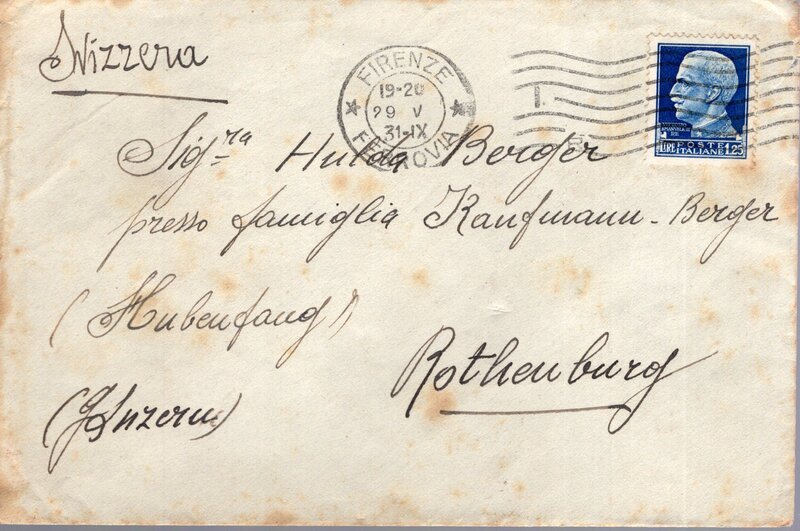 Svizzera
FIRENZE
19-20
29 V
31-IX
FERROVIA
EMANUELE III
RE
POSTE
LIRE ITALIANE 1.25
Sig.ra Hulda Berger
presso famiglia Kaufmann-Berger
(Hubenfang)
Rothenburg
(Luzern)